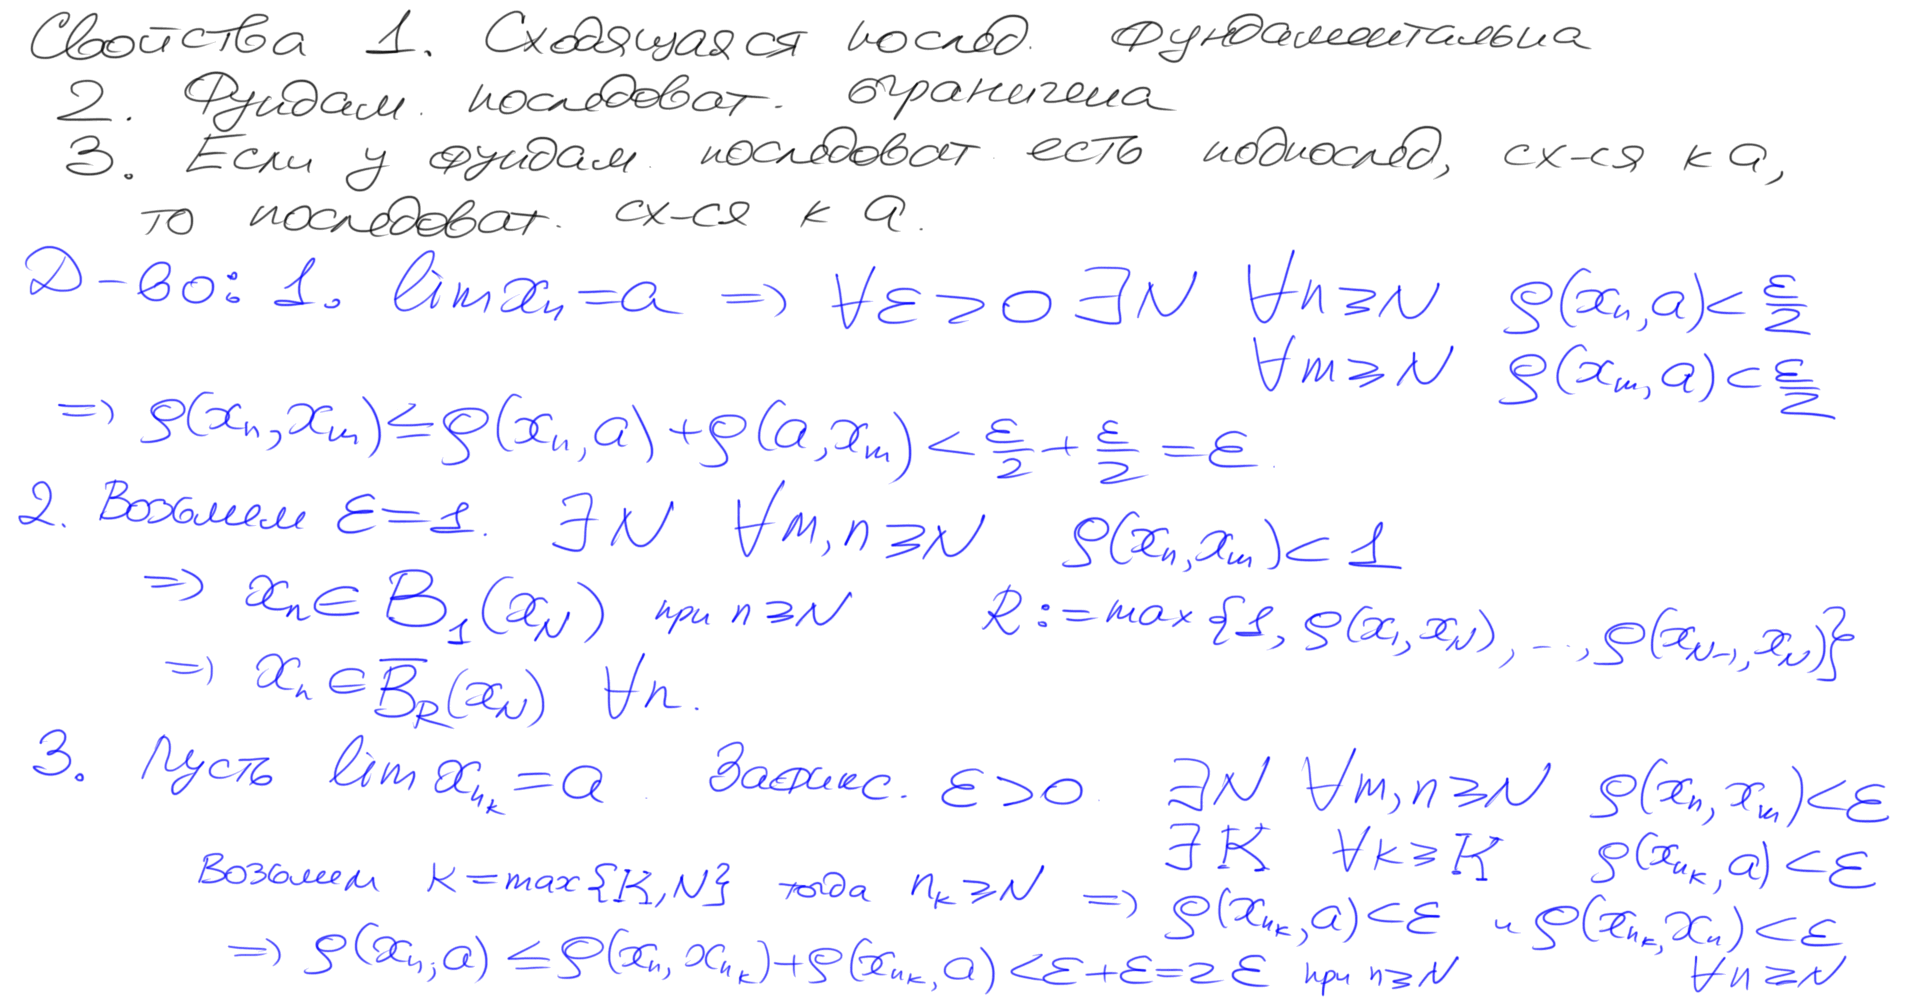 Свойства 1. Сходящаяся послед. фундаментальна
2. Фундам. последоват. ограничена
3. Если у фундам. последоват есть подпослед, сх-ся к a,
то последоват. сх-ся к a.
Д-во: 1. lim xₙ = a => ∀ε>0 ∃N ∀n≥N ρ(xₙ,a)<ε/2
∀m≥N ρ(xₘ,a)<ε/2
=> ρ(xₙ,xₘ)≤ρ(xₙ,a)+ρ(a,xₘ)<ε/2+ε/2=ε
2. Возьмем ε=1. ∃N ∀m,n≥N ρ(xₙ,xₘ)<1
=> xₙ∈B₁(x_N) при n≥N R:=max{1, ρ(x₁,x_N), ..., ρ(x_{N-1},x_N)}
=> xₙ∈B̅_R(x_N) ∀n.
3. Пусть lim x_{n_k}=a. Зафикс. ε>0. ∃N ∀m,n≥N ρ(xₙ,xₘ)<ε
∃K ∀k≥K ρ(x_{n_k},a)<ε
Возьмем k=max{K,N} тогда n_k≥N => ρ(x_{n_k},a)<ε и ρ(x_{n_k},xₙ)<ε
∀n≥N
=> ρ(xₙ,a)≤ρ(xₙ,x_{n_k})+ρ(x_{n_k},a)<ε+ε=2ε при n≥N